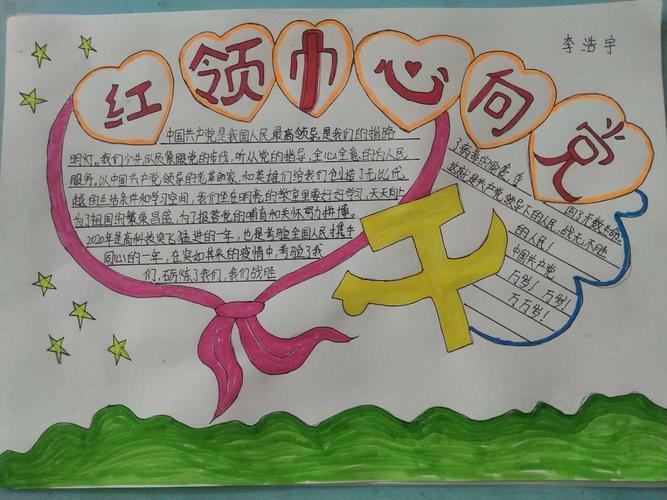 李浩宇
红领巾心向党
中国共产党是我国人民最高领导,是我们的指路
明灯。我们少先队员象跟党的步伐,听从党的指导,全心全意的为人民
服务。以中国共产党领导的老革命家,和英雄们给我们创造了无比优
越的生活条件和学习空间,我们坐在明亮的教室里要好好学习,天天向上
为了祖国的繁荣昌盛,为了报答党的哺育和关怀努力拼搏。
2020年是高科技突飞猛进的一年,也是考验全国人民携手
同心的一年,在突如其来的疫情中,考验了我
们,砺炼了我们,我们战胜
了病毒的
回了无数生命
这就是共产党领导下的人民,战无不胜
的人民!
中国共产党
万岁!万岁!
万万岁!